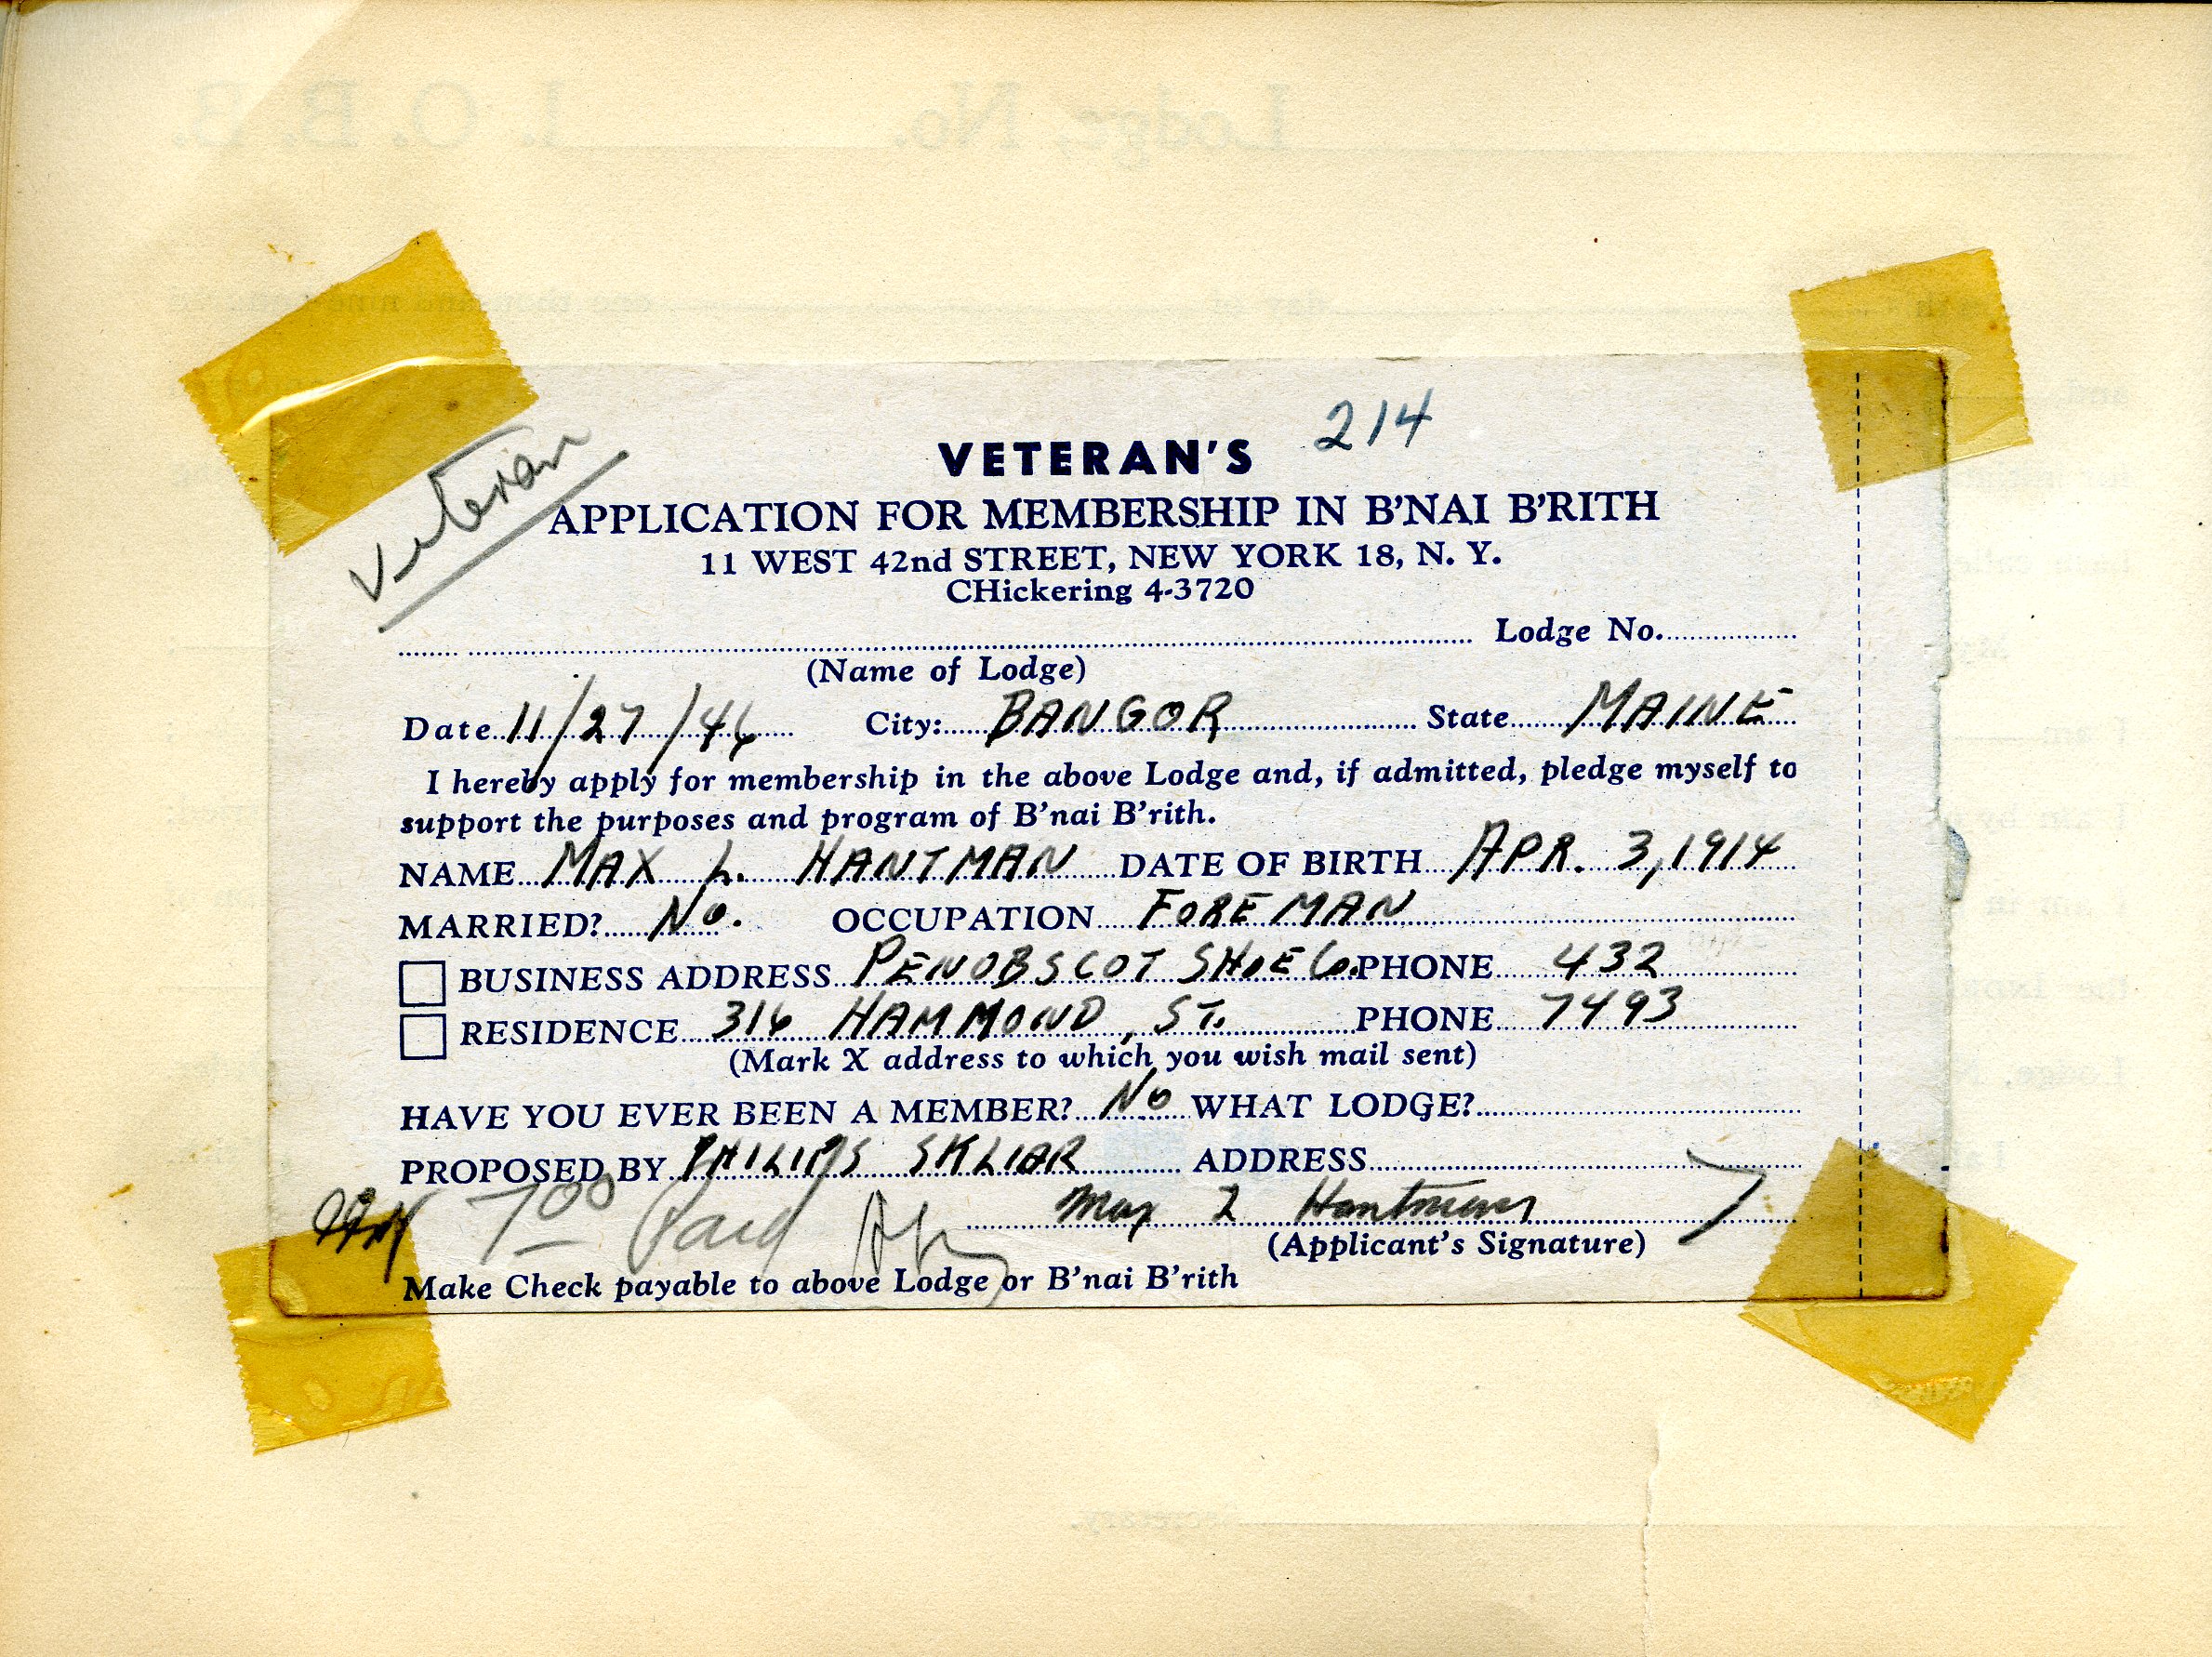 Lodge, No. I. O. B. B.
214
Veteran
VETERAN'S
APPLICATION FOR MEMBERSHIP IN B'NAI B'RITH
11 WEST 42nd STREET, NEW YORK 18, N. Y.
CHickering 4-3720
Lodge No.
(Name of Lodge)
Date 11/27/46 City: BANGOR State MAINE
I hereby apply for membership in the above Lodge and, if admitted, pledge myself to
support the purposes and program of B'nai B'rith.
NAME MAX L. HANTMAN DATE OF BIRTH APR. 3, 1914
MARRIED? No. OCCUPATION FOREMAN
BUSINESS ADDRESS PENOBSCOT SHOE Co. PHONE 432
RESIDENCE 316 HAMMOND, ST. PHONE 7493
(Mark X address to which you wish mail sent)
HAVE YOU EVER BEEN A MEMBER? No WHAT LODGE?
PROPOSED BY PHILIPS SKLIAR ADDRESS
7 00 Paid Max L Hantman
(Applicant's Signature)
Make Check payable to above Lodge or B'nai B'rith
Secretary.